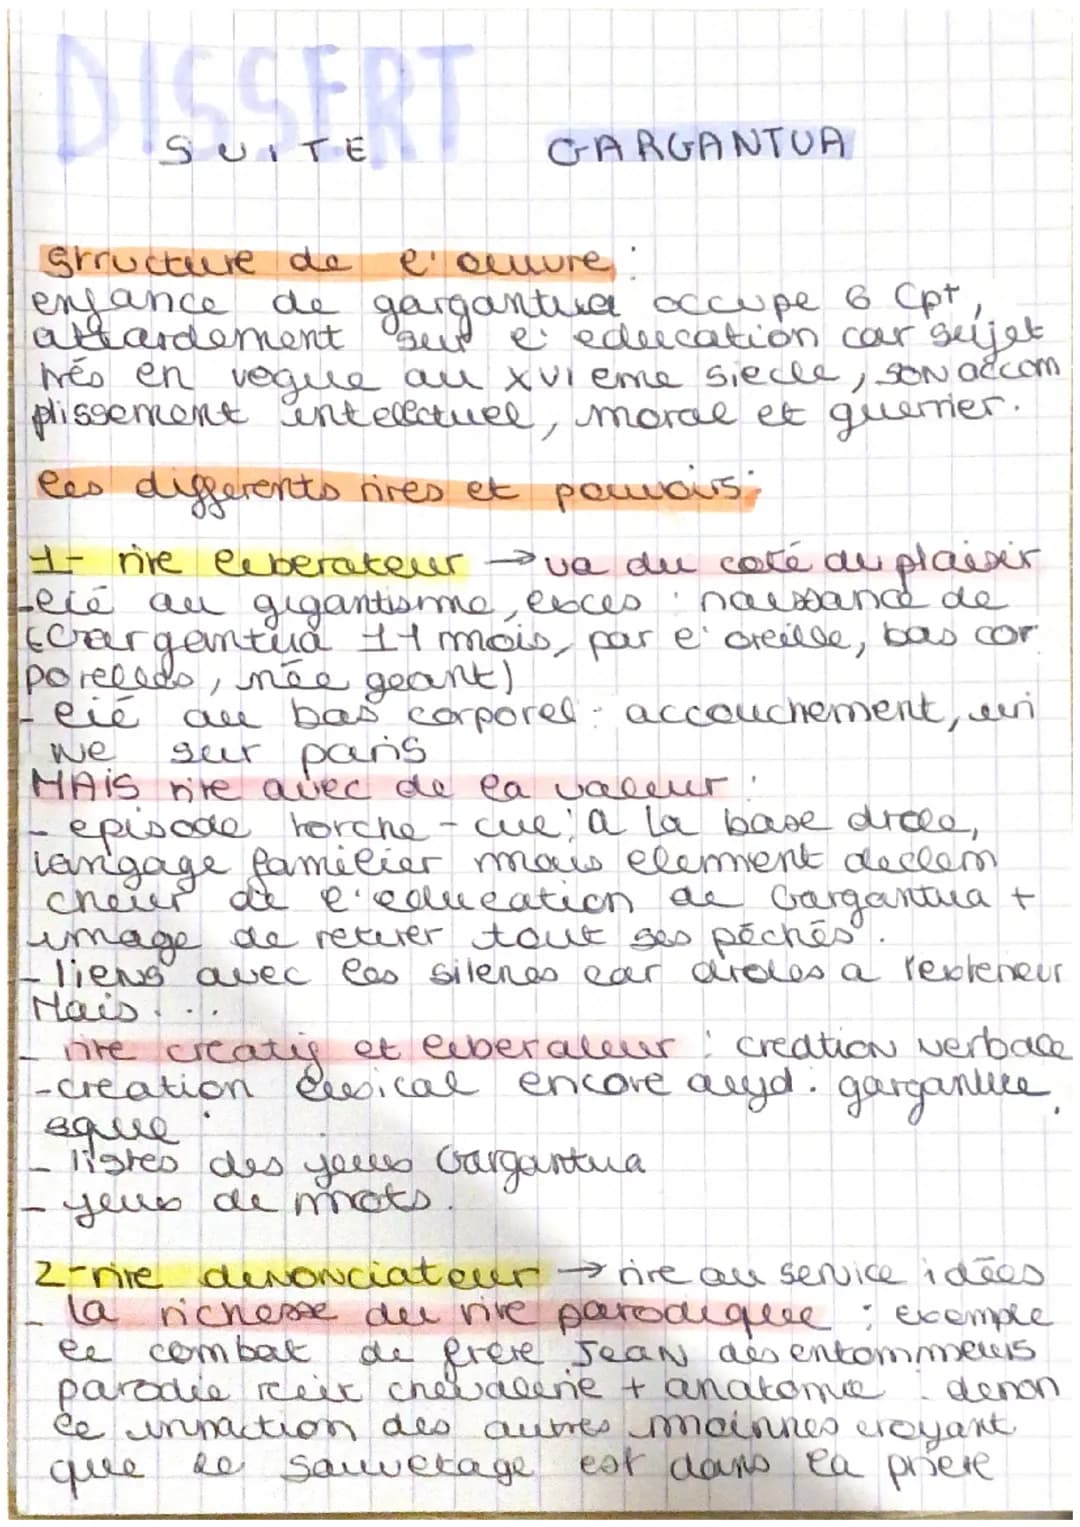 DISSERT
SUITE GARGANTUA
structure de l'œuvre :
enfance de gargantua occupe 6 Cpt,
attardement sur l'education car sujet
très en vogue au XVI eme siecle, son accom
plissement intellectuel, moral et guerrier.
les differents rires et pouvoirs :
1- rire liberateur → va du coté du plaisir
- lié au gigantisme, exces : naissance de
(Gargantua 11 mois, par l'oreille, bas cor
porelles, née geant)
- lié au bas corporel : accouchement, uri
ne sur paris
MAIS rire avec de la valeur :
- episode torche-cul : a la base drole,
langage familier mais element declen
cheur de l'education de Gargantua +
image de retirer tout ses péchés.
- liens avec les silenes car droles a l'exterieur
Mais...
- rire creatif et liberateur : creation verbale
- creation lexical encore aujd. gargantue
sque.
- listes des jeux Gargantua
- jeux de mots.
2- rire denonciateur → rire au service idées
- la richesse du rire parodique : exemple
le combat de frere Jean des entommeurs
parodie recit chevalerie + anatomie : denon
ce innaction des autres moinnes croyant
que le sauvetage est dans la priere